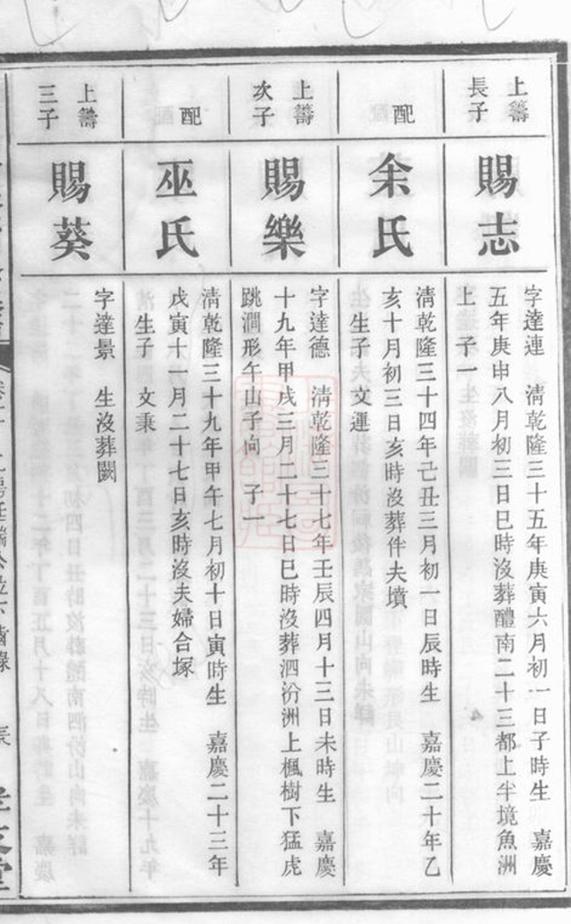 上籌
長子
賜志
字達連　清乾隆三十五年庚寅六月初一日子時生　嘉慶
五年庚申八月初三日巳時沒葬醴南二十三都上半境魚洲
上　子一
配
余氏
清乾隆三十四年己丑三月初一日辰時生　嘉慶二十年乙
亥十月初三日亥時沒葬伴夫墳
生子　文運
上籌
次子
賜樂
字達德　清乾隆三十七年壬辰四月十三日未時生　嘉慶
十九年甲戌三月二十七日巳時沒葬泗汾洲上楓樹下猛虎
跳澗形午山子向　子一
配
巫氏
清乾隆三十九年甲午七月初十日寅時生　嘉慶二十三年
戊寅十一月二十七日亥時沒夫婦合塚
生子　文秉
上籌
三子
賜葵
字達景　生沒葬闕